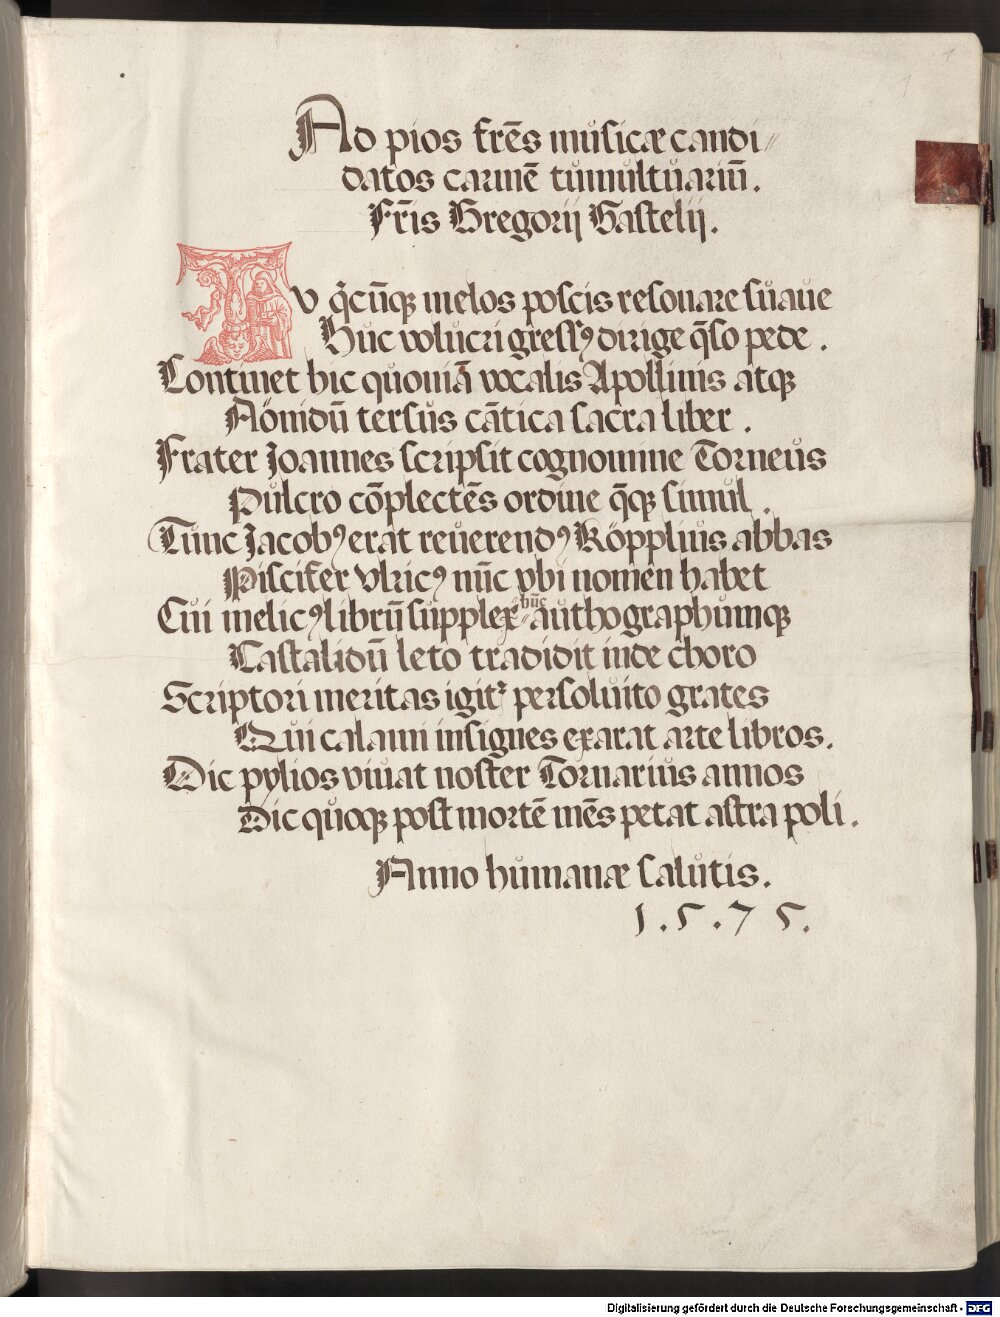 Ad pios frēs musicæ candi〃
datos carmē tumultuariū.
Fr̄is Gregorij Gastelij.
TV q̊cūq̨ melos poscis resonare suaue
Huc volucri gressꝰ dirige q̄so pede.
Continet hic quoniā vocalis Apollinis atq̨
Aönidū tersus cātica sacra liber.
Frater Joannes scripsit cognomine Torneus
Pulcro cōplectēs ordine q̄q̨ simul.
Tunc Jacobꝰ erat reuerendꝰ Köpplius abbas
Piscifer vlricꝰ nūc vbi nomen habet
Cui melicꝰ librū supplex hūc authographumq̨
Castalidū leto tradidit inde choro
Scriptori meritas igit᷑ persoluito grates
Qui calami insignes exarat arte libros.
Dic pylios viuat noster Tornarius annos
Dic quoq̨ post mortē mēs petat astra poli.
Anno humanæ salutis.
1.5.7.5.
1
1
Digitalisierung gefördert durch die Deutsche Forschungsgemeinschaft - DFG